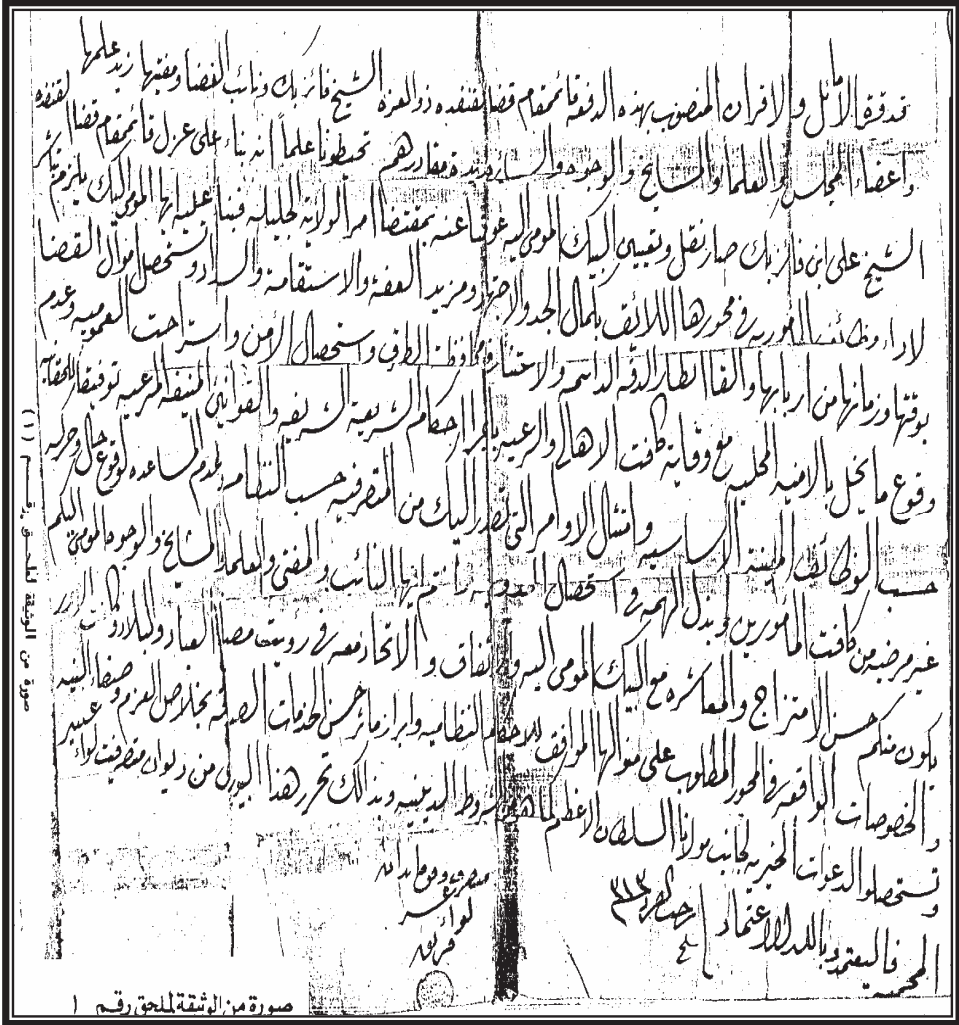 قدوة الأماثل والاقران المنصوب بهذه الدفعة قائمقام قضا القنفده ذو العزه الشيخ فائز بك ونائب القضا ومفتيها زيد علمهما
واعضاء المجلس والعلما والمشايخ والوجوه والسائر زيدة مقاديرهم تحيطون علماً انه بناء على عزل قائمقام قضا القنفده
الشيخ على ابن فائز بك صار نقل وتعيين البيك المومى اليه عوضا عنه بمقتضا امر الولاية الجليلة فبناء عليه ايها المومى اليك يلزم
لاداء وظائف المأموريه في محورها اللائق بكمال الجد والاجتهاد ومزيد العفة والاستقامة والسداد وتستحصل اموال القضا
بوقتها وزمانها من اربابها والقا انظار الدقه الدائمه والاعتناء ومحافظة الطرق واستحصال الأمن واستراحت العموميه وعدم
وقوع ما يخل بالامنيه المحليه مع وقاية كافت الاهالي والرعيه باجراء احكام الشريعة الشريفه والقوانين المنيفه المرعيه توفيقا للحقانيه
حسب الوظائف المبينة الاساسيه وامتثال الاوامر التي تصدر اليك من المتصرفيه حسب النظام وعدم المساعده لوقوع حال وحركه
غير مرضيه من كافت المأمورين وبذل الهمه في استحصال وانتم ايها النائب والمفتي والعلما والمشايخ والوجوه المومى اليكم
يكون منكم حسن الامتزاج والمعاشره مع البيك المومى اليه والاتفاق والاتحاد معه في رويت مصالح العباد والبلاد وكافت
والخصوصات الواقعه في المحور المطلوب على منوالها الموافق للاحكام النظاميه وابراز مآثر حسن الخدمات الصادقه بخلاص العزم وصفاء النيه
وتستحصلوا الدعوات الخيريه لجانب مولانا السلطان الاعظم لما هو شروط الديانيه وبذالك تحرر هذا البيورلدي من ديوان متصرفيت لواء عسير
المحميه فاليعتمد وبالله الاعتماد
رجب ٣١٣
متصرف وقوماندان
لواء عسير
فريق
صورة من الوثيقة لملحق رقم ١
صورة من الوثيقة لملحق رقم (١)